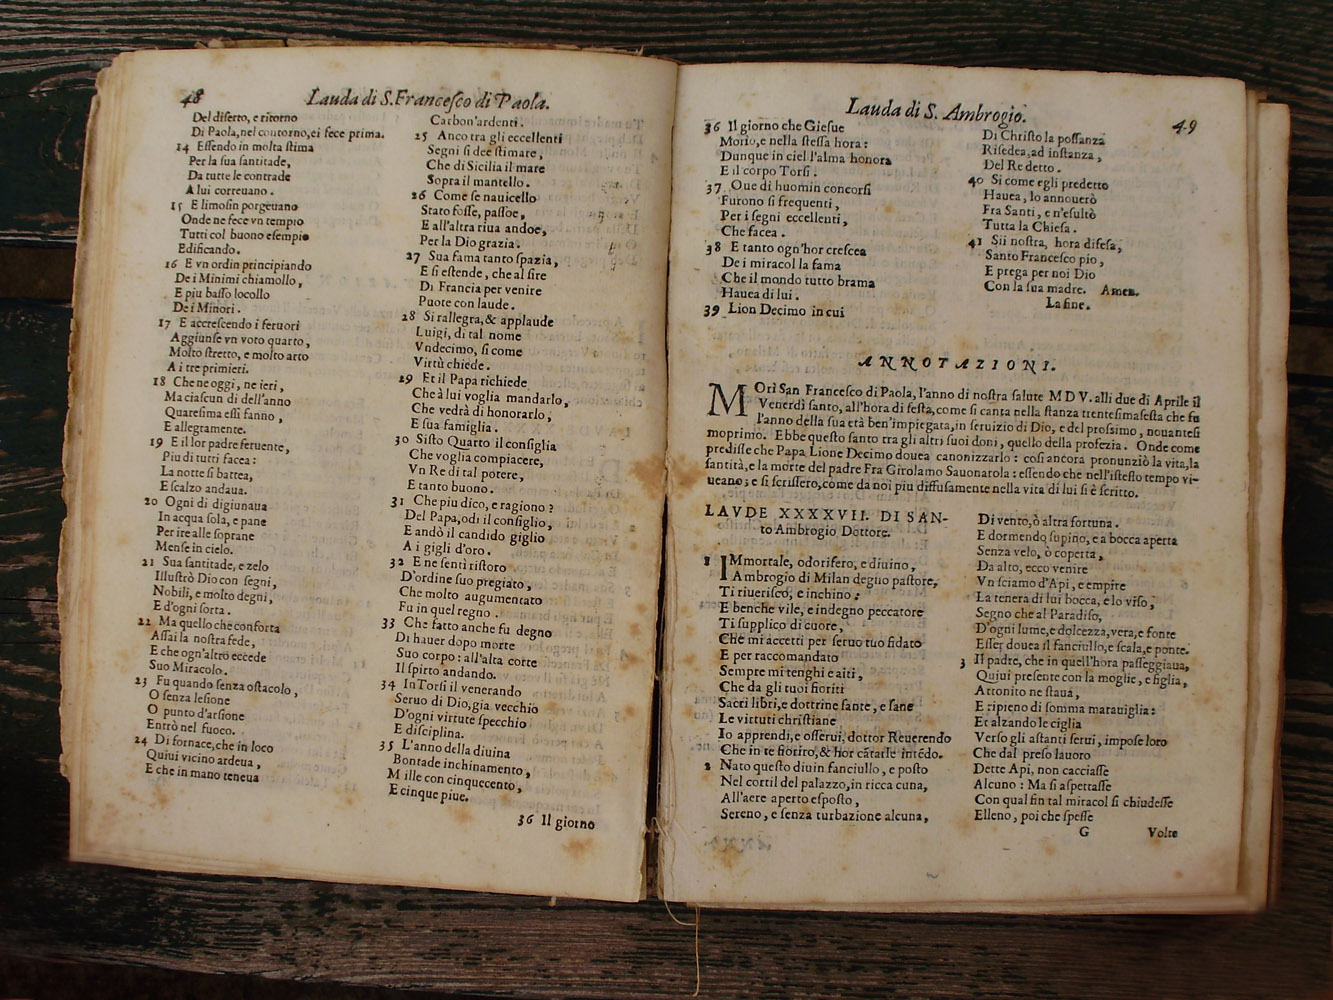 48
Lauda di S. Francesco di Paola.
Del diserto, e ritorno
Di Paola, nel contorno, ei fece prima.
14 Eſſendo in molta ſtima
Per la ſua ſantitade,
Da tutte le contrade
A lui correuano.
15 E limoſin porgeuano
Onde ne fece vn tempio
Tutti col buono eſempio
Edificando.
16 E vn ordin principiando
De i Minimi chiamollo,
E piu baſſo locollo
De i Minori.
17 E accreſcendo i feruori
Aggiunſe vn voto quarto,
Molto ſtretto, e molto arto
A i tre primieri.
18 Che ne oggi, ne ieri,
Ma ciaſcun di dell'anno
Quareſima eſſi fanno,
E allegramente.
19 E il lor padre feruente,
Piu di tutti facea:
La notte ſi battea,
E ſcalzo andaua.
20 Ogni di digiunaua
In acqua ſola, e pane
Per ire alle ſoprane
Menſe in cielo.
21 Sua ſantitade, e zelo
Illuſtrò Dio con ſegni,
Nobili, e molto degni,
E d'ogni ſorta.
22 Ma quello che conforta
Aſſai la noſtra fede,
E che ogn'altro eccede
Suo Miracolo.
23 Fu quando ſenza oſtacolo,
O ſenza leſione
O punto d'arſione
Entrò nel fuoco.
24 Di fornace, che in loco
Quiui vicino ardeua,
E che in mano teneua
Carbon'ardenti.
25 Anco tra gli eccellenti
Segni ſi dee ſtimare,
Che di Sicilia il mare
Sopra il mantello.
26 Come ſe nauicello
Stato foſſe, paſſoe,
E all'altra riua andoe,
Per la Dio grazia.
27 Sua fama tanto ſpazia,
E ſi eſtende, che al ſire
Di Francia per venire
Puote con laude.
28 Si rallegra, & applaude
Luigi, di tal nome
Vndecimo, ſi come
Virtù chiede.
29 Et il Papa richiede
Che à lui voglia mandarlo,
Che vedrà di honorarlo,
E ſua famiglia.
30 Siſto Quarto il conſiglia
Che voglia compiacere,
Vn Re di tal potere,
E tanto buono.
31 Che piu dico, e ragiono?
Del Papa, odi il conſiglio,
E andò il candido giglio
A i gigli d'oro.
32 E ne ſenti riſtoro
D'ordine ſuo pregiato,
Che molto augumentato
Fu in quel regno.
33 Che fatto anche fu degno
Di hauer dopo morte
Suo corpo: all'alta corte
Il ſpirto andando.
34 In Torſi il venerando
Seruo di Dio, gia vecchio
D'ogni virtute ſpecchio
E diſciplina.
35 L'anno della diuina
Bontade inchinamento,
Mille con cinquecento,
E cinque piue.
36 Il giorno
Lauda di S. Ambrogio.
49
36 Il giorno che Gieſue
Morio, e nella ſteſſa hora:
Dunque in ciel l'alma honora
E il corpo Torſi.
37 Oue di huomin concorſi
Furono ſi frequenti,
Per i ſegni eccellenti,
Che facea.
38 E tanto ogn'hor creſcea
De i miracol la fama
Che il mondo tutto brama
Hauea di lui.
39 Lion Decimo in cui
Di Chriſto la poſſanza
Riſedea, ad inſtanza,
Del Re detto.
40 Si come egli predetto
Hauea, lo annouerò
Fra Santi, e n'eſultò
Tutta la Chieſa.
41 Sii noſtra, hora difeſa,
Santo Franceſco pio,
E prega per noi Dio
Con la ſua madre. Amen.
La fine.
ANNOTAZIONI.
MOri San Franceſco di Paola, l'anno di noſtra ſalute MDV. alli due di Aprile il
Venerdì ſanto, all'hora di ſeſta, come ſi canta nella ſtanza trenteſimaſeſta che fu
l'anno della ſua età ben'impiegata, in ſeruizio di Dio, e del proſſimo, nouanteſi
moprimo. Ebbe queſto ſanto tra gli altri ſuoi doni, quello della profezia. Onde come
prediſſe che Papa Lione Decimo douea canonizzarlo: coſi ancora pronunziò la vita, la
ſantità, e la morte del padre Fra Girolamo Sauonarola: eſſendo che nell'iſteſſo tempo vi-
ueano; e ſi ſcriſſero, come da noi piu diffuſamente nella vita di lui ſi è ſcritto.
LAVDE XXXXVII. DI SAN-
to Ambrogio Dottore.
1 IMmortale, odorifero, e diuino,
Ambrogio di Milan degno paſtore,
Ti riueriſco, e inchino:
E benche vile, e indegno peccatore
Ti ſupplico di cuore,
Che mi accetti per ſeruo tuo fidato
E per raccomandato
Sempre mi tenghi e aiti,
Che da gli tuoi fioriti
Sacri libri, e dottrine ſante, e ſane
Le virtuti chriſtiane
Io apprendi, e oſſerui, dottor Reuerendo
Che in te fiorito, & hor cātarſe intēdo.
2 Nato queſto diuin fanciullo, e poſto
Nel cortil del palazzo, in ricca cuna,
All'aere aperto eſpoſto,
Sereno, e ſenza turbazione alcuna,
Di vento, ò altra fortuna.
E dormendo ſupino, e a bocca aperta
Senza velo, ò coperta,
Da alto, ecco venire
Vn ſciamo d'Api, e empire
La tenera di lui bocca, e lo viſo,
Segno che al Paradiſo,
D'ogni lume, e dolcezza, vera, e fonte
Eſſer douea il fanciullo, e ſcala, e ponte.
3 Il padre, che in quell'hora paſſeggiaua,
Quiui preſente con la moglie, e figlia,
Attonito ne ſtaua,
E ripieno di ſomma marauiglia:
Et alzando le ciglia
Verſo gli aſtanti ſerui, impoſe loro
Che dal preſo lauoro
Dette Api, non cacciaſſe
Alcuno: Ma ſi aſpettaſſe
Con qual fin tal miracol ſi chiudeſſe
Elleno, poi che ſpeſſe
G
Volte